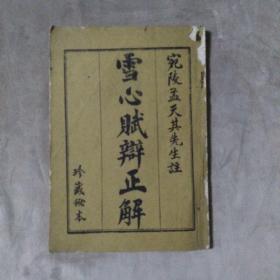 宛陵孟天其先生註
雪心賦辯正解
珍藏秘本